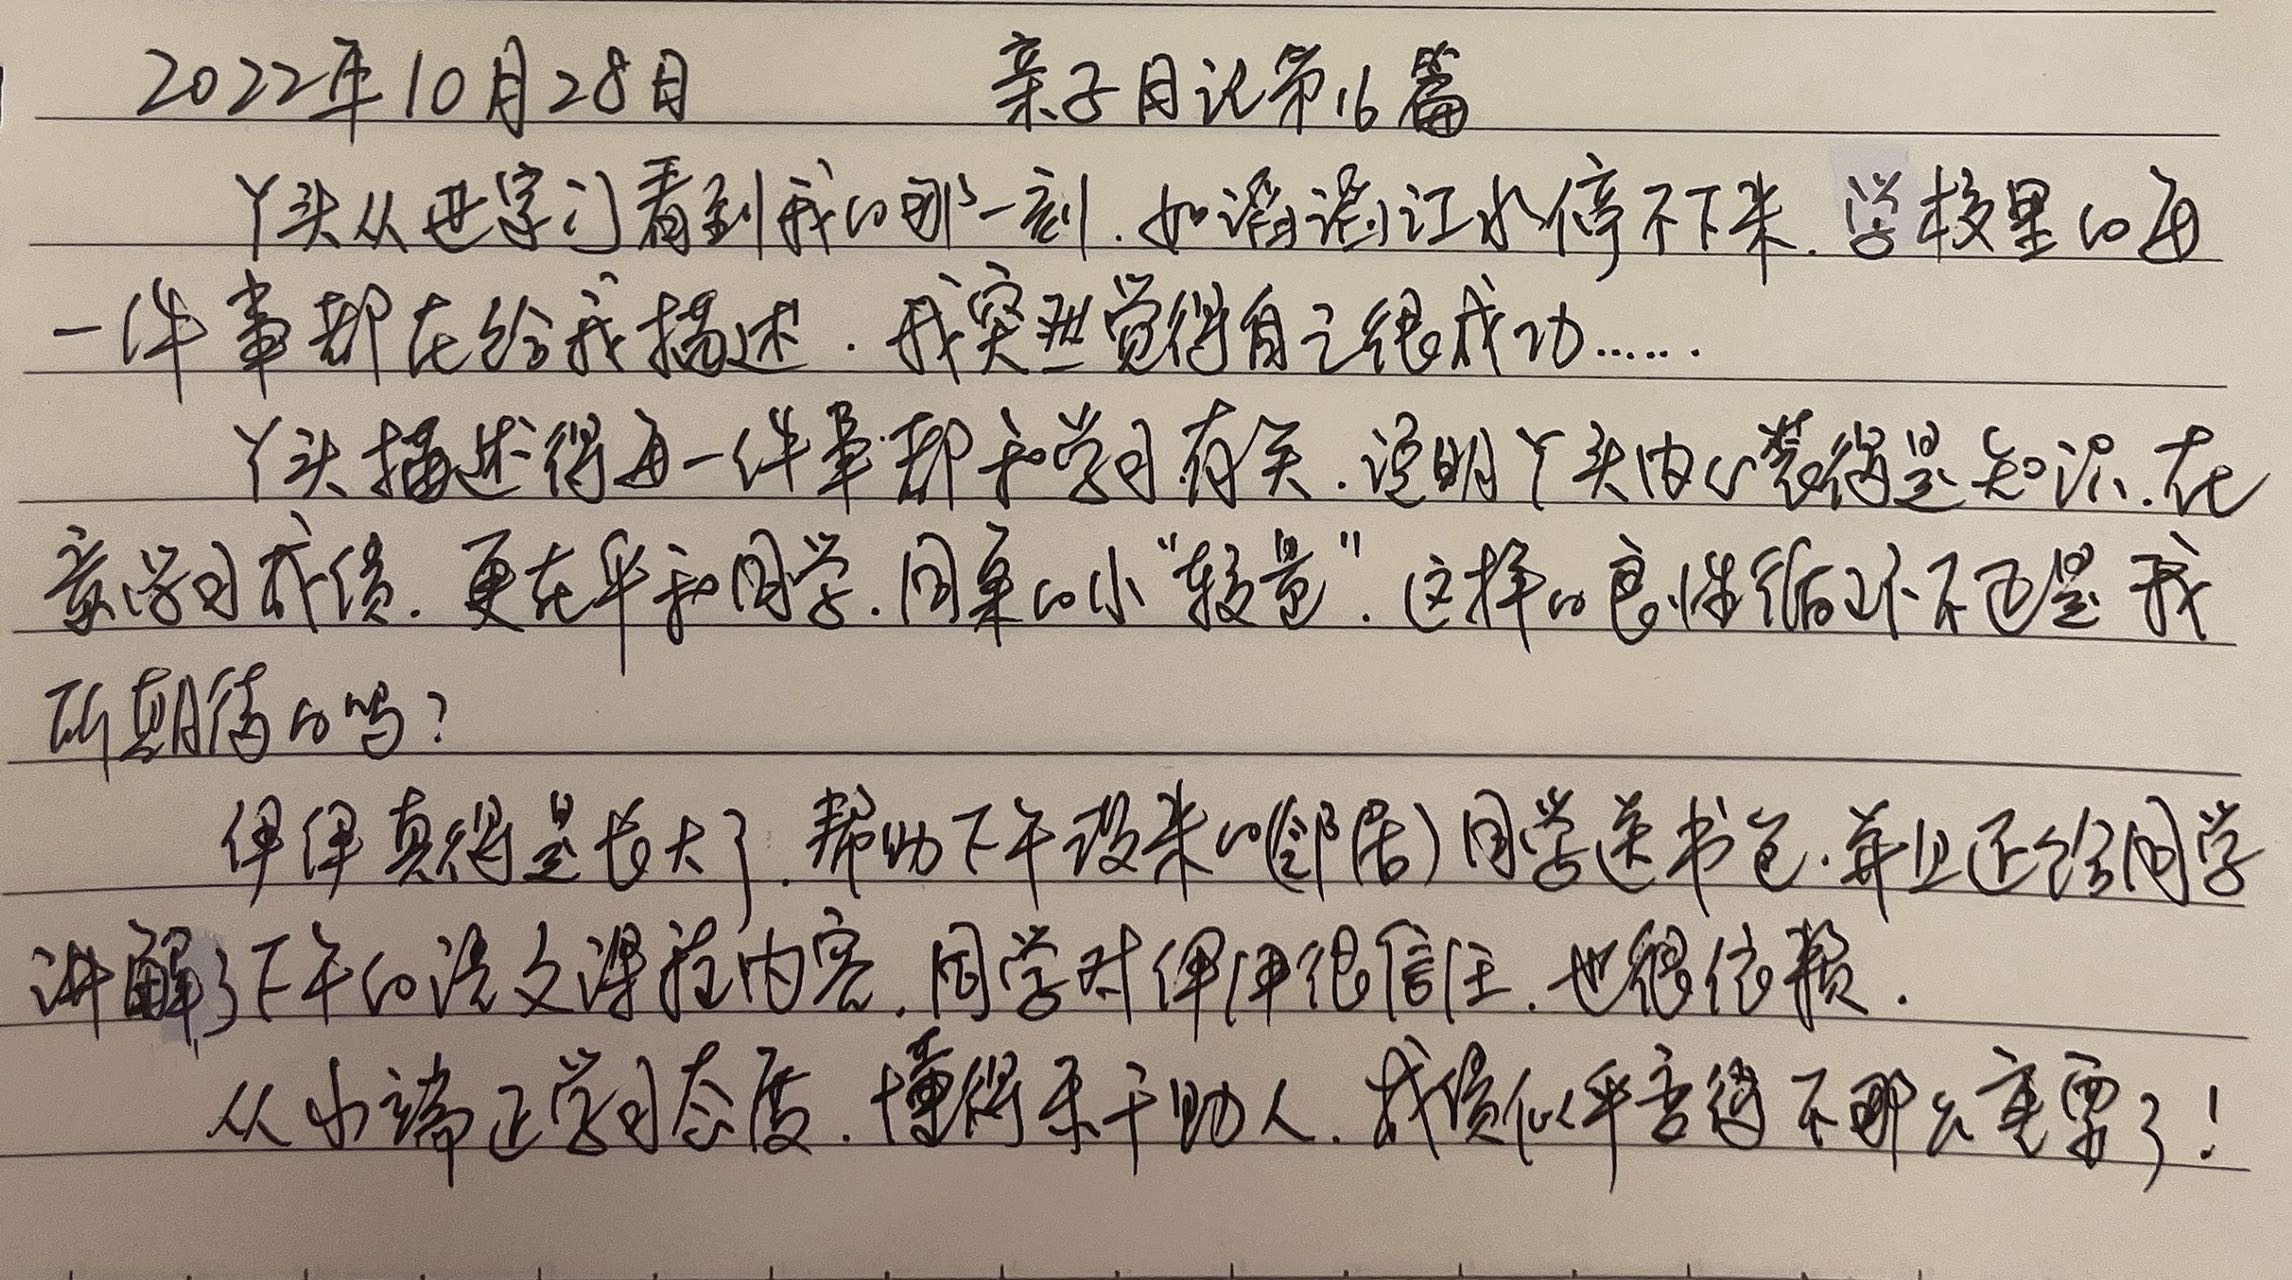 2022年10月28日 亲子日记第16篇
丫头从进家门看到我的那一刻.如滔滔江水停不下来.学校里的每
一件事都在给我描述.我突然觉得自己很成功......
丫头描述得每一件事都和学习有关.说明丫头内心装得是知识.在
意学习成绩.更在乎和同学.同桌的小“较量”.这样的良性循环不正是我
所期待的吗?
伊伊真得是长大了.帮助下午没来的(邻居)同学送书包.并且还给同学
讲解了下午的语文课程内容.同学对伊伊很信任.也很依赖.
从小端正学习态度.懂得乐于助人.成绩似乎变得不那么重要了!